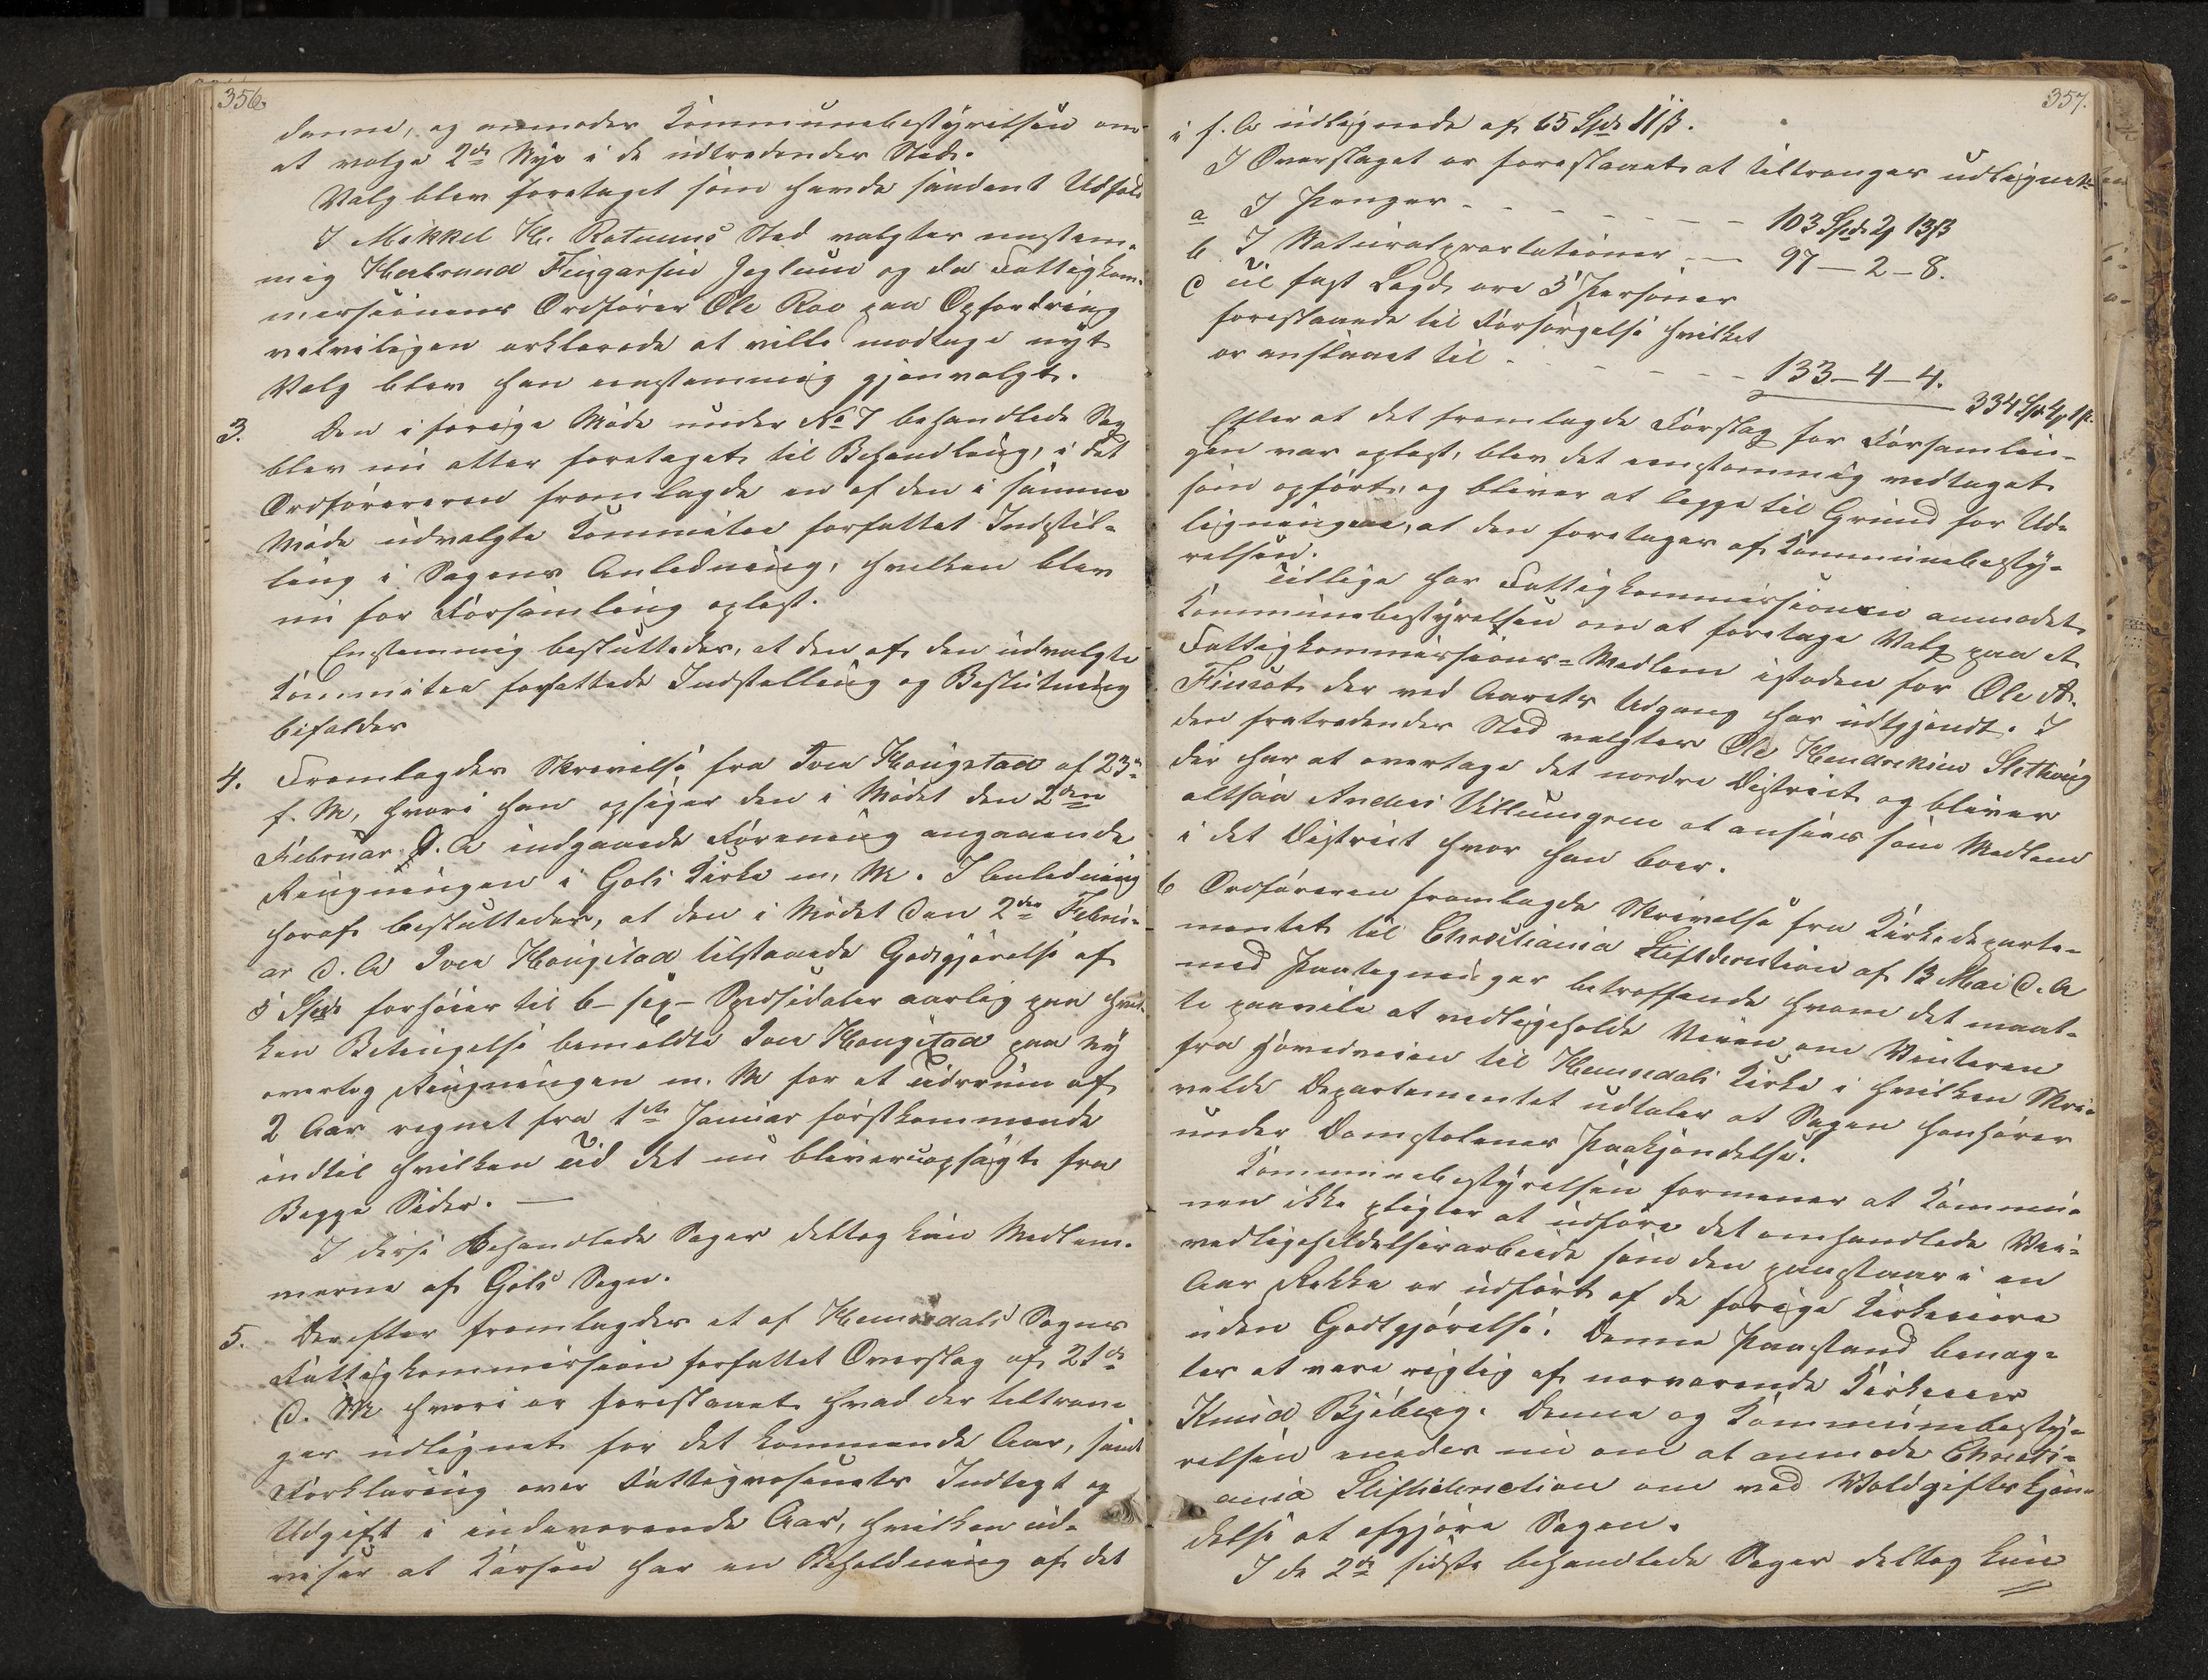 356.
denne, og anmodes Kommunebestyrelsen om
at valge 2de Nye i de udtredendes Sted.
Valg blev foretaget som havde saadant Udfald
I Mikkel H. Rotnems Sted valgtes eenstem-
mig Herbrand Finga­rsen Jeglum og da Fattigkom-
mersionens Ordfører Ole Roe paa Opfordring
velviligen erklærede at ville modtage nyt
Valg blev han eenstemmig gjenvalgt.
3. Den i forige Møde under No 7 behandlede Sag
blev nu atter foretaget til Behandling, i det
Ordføreren fremlagde en af den i samme
Møde udvalgte Kommitee forfattet Indstil-
ling i Sagens Anledning, hvilken blev
nu for Forsamling oplest.
Enstemmig besluttedes, at den af den udvalgte
Kommitee forfattede Indstilling og Beslutning
bifaldes
4. Fremlagdes Skrivelse fra Iver Hougstad af 23de
f. M, hvori han opsiger den i Mødet den 2den
Februar d. A indgaaede Forening angaaende
Ringningen i Gols Kirke m. M. I Anledning
heraf besluttedes, at den i Mødet den 2den Febru-
ar d. A Iver Hougstad tilstaaede Godtgjørelse af
5 Spd forhøies til 6 - sex - Speciedaler aarlig paa hvil-
ken Betingelse bemeldte Iver Hougstad paa ny
overtog Ringningen m. M for et Tidsrum af
2 Aar regnet fra 1ste Januar førstkommende
indtil hvilken Tid det nu bliver opsagt fra
Begge Sider. —
I disse Behandlede Sager deltog kun Medlem-
merne af Gols Sogn.
5. Derefter fremlagdes et af Hemsedals Sogns
Fattigkommission forfattet Overslag af 21de
d. M hvori er foreslaaet hvad der tiltren-
ges udlignet for det kommende Aar, samt
Forklaring over Fattigvesenets Indtegt og
Udgift i indeverende Aar, hvilken ud-
viser at Kassen har en Beholdning af det
357.
i f. A udlignede af 65 Spd 11 ß.
I Overslaget er foreslaaet at tiltrenges udlignet
a I Penger - - - - - - - 103 Spd 2 13ß
b I Naturalprestationer - — 97 — 2 — 8.
c Til fast Legd ere 5 Personer
foreslaaede til Forsørgelse hvilket
er anslaaet til - - - - - - 133 — 4 — 4.
334 Spd 4 1ß.
Efter at det fremlagde Forslag for Forsamlin-
gen var oplest, blev det eenstemmig vedtaget
som opført, og bliver at legge til Grund for Ud-
ligningen, at den foretages af Kommunebesty-
relsen.
Tillige har Fattigkommissionen anmodet
Kommunebestyrelsen om at foretage Valg paa et
Fattigkommissions-Medlem istæden for Ole A.
Finset der ved Aarets Udgang har udtjent. I
den fratredendes Sted valgtes Ole Hendriksen
der har at overtage det nordre District og bliver
altsaa Anders Villumsen at ansees som Medlem
i det District hvor han boer.
6 Ordføreren fremlagde Skrivelse fra Kirkedeparte-
mentet til Christiania Stiftdirection af 13 Mai d. A
med Paategninger betreffende hvem det maat-
te paavile at vedligeholde Veien om Vinteren
fra Hovedveien til Hemsedals Kirke i hvilken Skri-
velse Departementet udtaler at Sagen henhører
under Domstolenes Paakjendelse.
Kommunebestyrelsen formener at Kommu-
nen ikke pligter at udføre det omhandlede Vei-
vedligeholdelsesarbeide som den paastaar i en
Aar Rekke er udført af de forige Kirkeeiere
uden Godtgjørelse. Denne Paastand beneg-
tes at vere rigtig af nerverende Kirkeeier
Knud Bjøberg. Denne og Kommunebesty-
relsen enedes nu om at anmode Christi-
ania Stiftsdirection om ved Voldgiftskjen-
delse at afgjøre Sagen.
I de 2de sidste behandlede Sager deltog kun